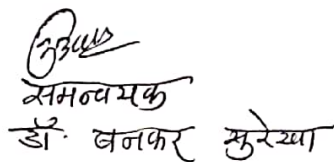 समन्वयक
डॉ. बनकर सुरेखा